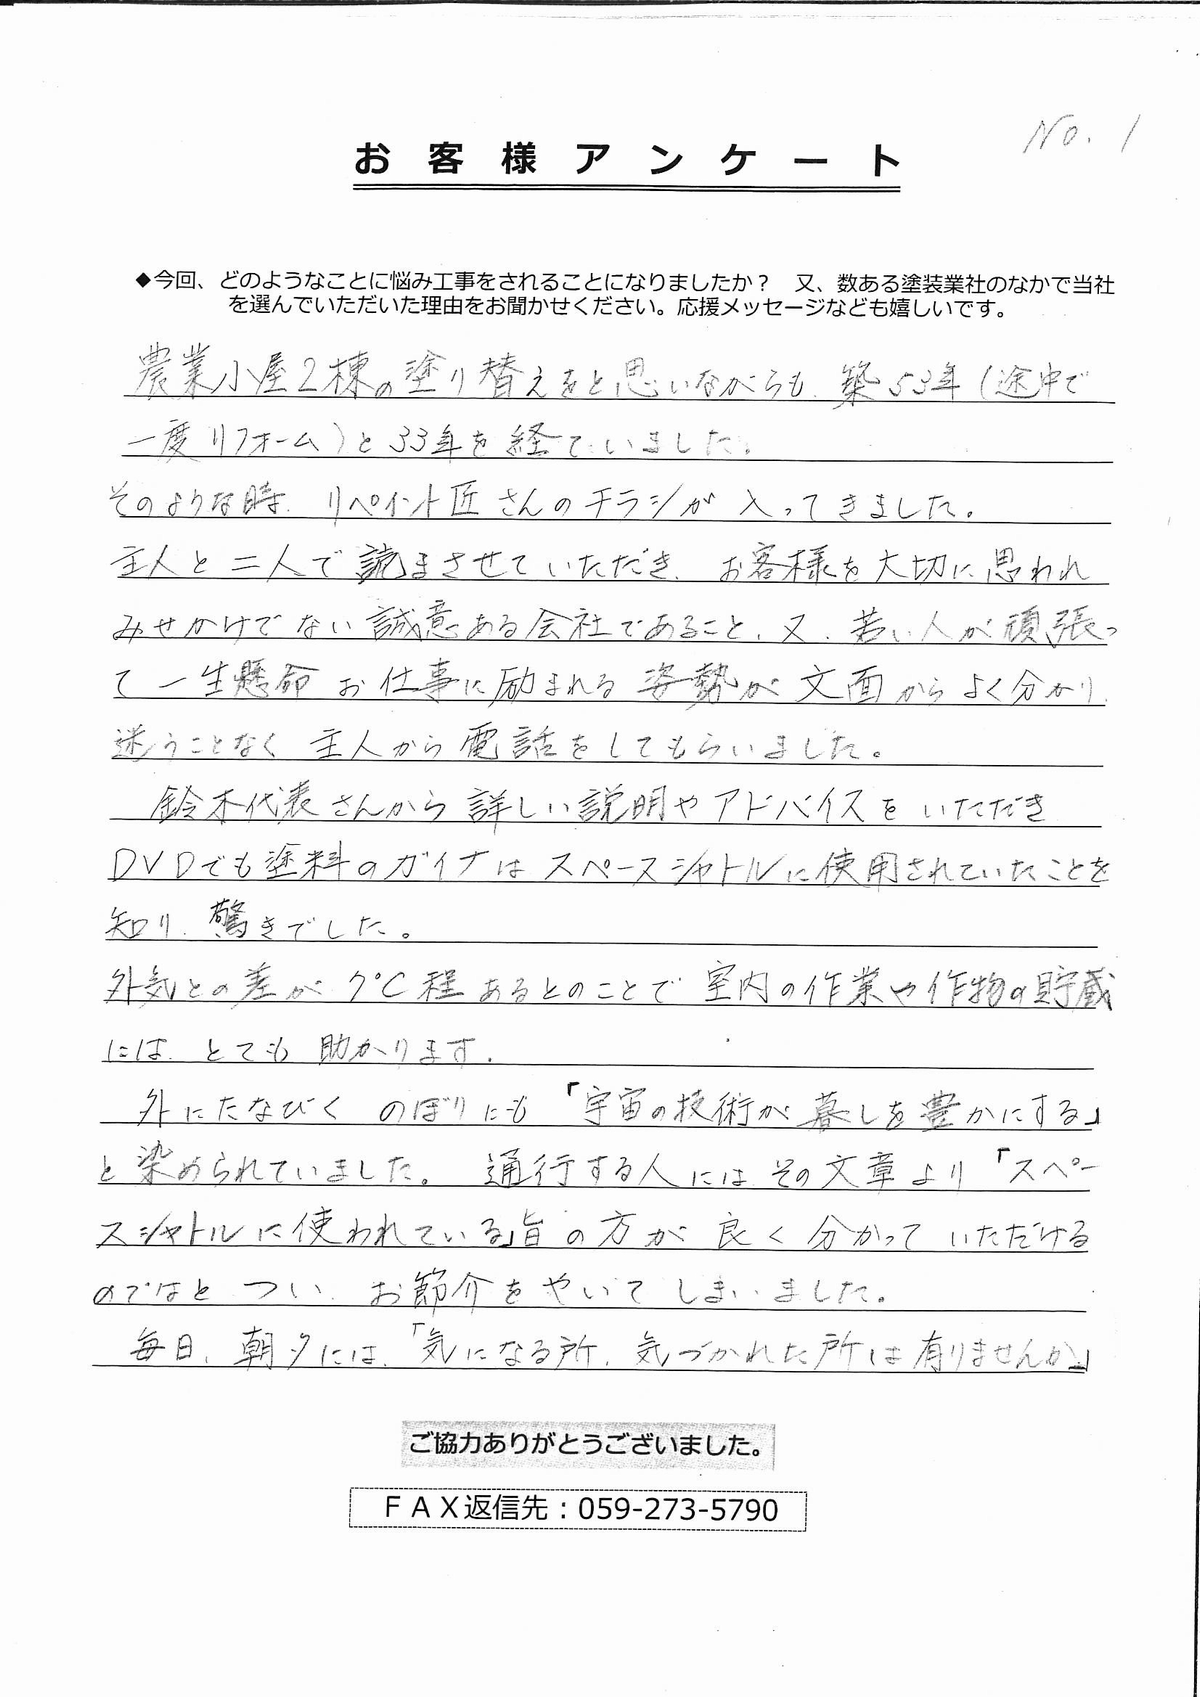 No. 1
お客様アンケート
◆今回、どのようなことに悩み工事をされることになりましたか？　又、数ある塗装業社のなかで当社
を選んでいただいた理由をお聞かせください。応援メッセージなども嬉しいです。
農業小屋2棟の塗り替えをと思いながらも、築53年(途中で
一度リフォーム)と33年を経ていました。
そのような時、リペイント匠さんのチラシが入ってきました。
主人と二人で読まさせていただき、お客様を大切に思われ
みせかけでない誠意ある会社であること、又、若い人が頑張っ
て一生懸命お仕事に励まれる姿勢が文面からよく分かり、
迷うことなく主人から電話をしてもらいました。
鈴木代表さんから詳しい説明やアドバイスをいただき
DVDでも塗料のガイナはスペースシャトルに使用されていたことを
知り、驚きでした。
外気との差が7℃程あるとのことで室内の作業や作物の貯蔵
には、とても助かります。
外にたなびくのぼりにも「宇宙の技術が暮しを豊かにする」
と染められていました。通行する人にはその文章より「スペー
スシャトルに使われている」旨の方が良く分かっていただける
のではとつい、お節介をやいてしまいました。
毎日、朝夕には、「気になる所、気づかれた所は有りませんか」
ご協力ありがとうございました。
ＦＡＸ返信先：059-273-5790